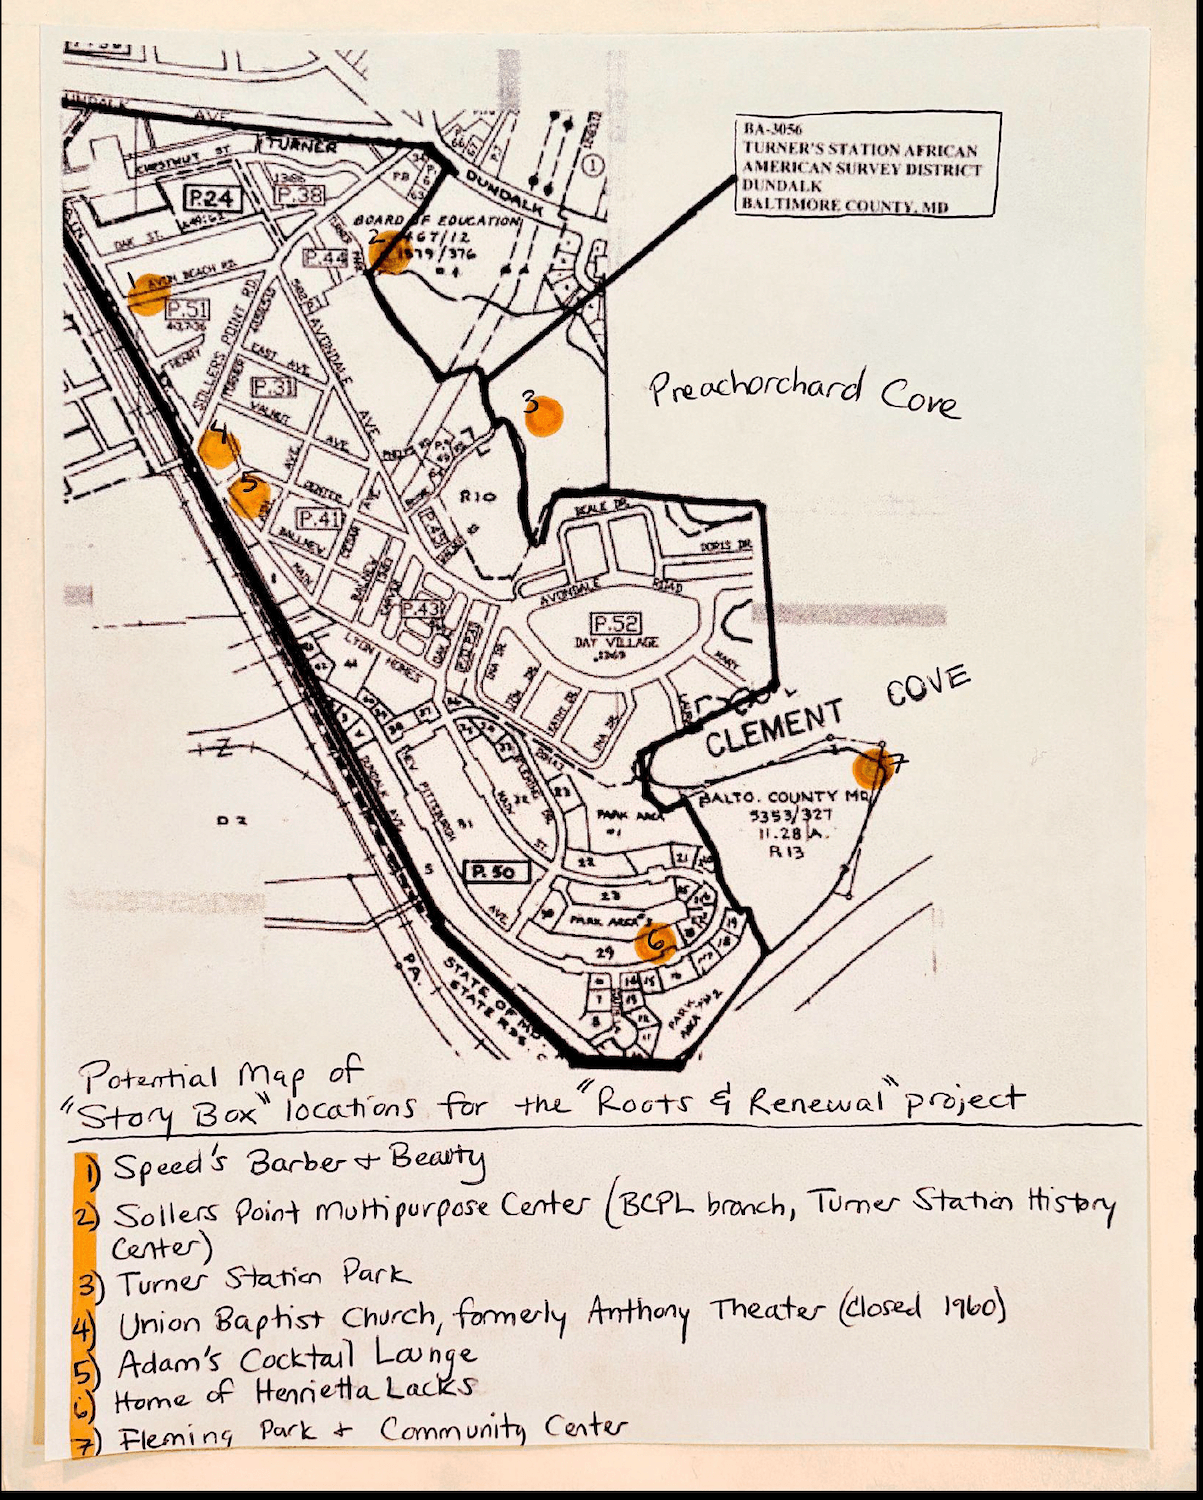 UNDALK
AVE
CHESTNUT ST
TURNER
1366
P.38
P.24
OAK ST.
DUNDALK
BA-3056
TURNER'S STATION AFRICAN
AMERICAN SURVEY DISTRICT
DUNDALK
BALTIMORE COUNTY, MD
BOARD OF EDUCATION
2
467/12
1879/376
P.44
1
AVON BEACH RD.
P.51
HENRY
SOLLERS POINT RD.
AVONDALE
AVE
EAST AVE
TURNER
P.31
WALNUT
AVE
3
Preachorchard Cove
4
5
AVE
CENTER
AVE
P.41
BALNEW
MAIN
CEDAR
R10
BEALE DR.
DORIS DR
AVONDALE ROAD
P.43
P.52
DAY VILLAGE
MARY
LYON HOMES
INA DR
KATHY DR
INA DR
COVE
CLEMENT
7
BALTO. COUNTY MD
5353/327
11.28 A.
R13
DUNDALK AVE
NEW PITTSBURGH
AVE
MAIN
ST
FLEMING DR
PARK AREA
#1
D2
P.50
22
21
23
PARK AREA
6
29
PARK
AREA #2
PA.
STATE OF MD.
STATE RDS. C
Potential Map of
"Story Box" locations for the "Roots & Renewal" project
1) Speed's Barber + Beauty
2) Sollers Point Multipurpose Center (BCPL branch, Turner Station History
Center)
3) Turner Station Park
4) Union Baptist Church, formerly Anthony Theater (closed 1960)
5) Adam's Cocktail Lounge
6) Home of Henrietta Lacks
7) Fleming Park + Community Center